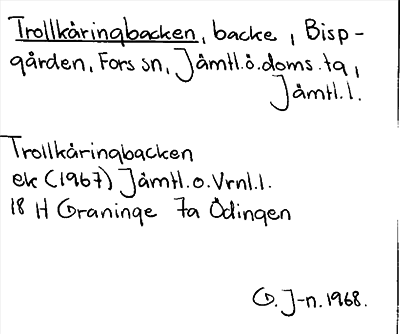 Trollkåringbacken, backe, Bisp-
gården, Fors sn, Jämtl.ö.doms.tg,
Jämtl.l.
Trollkåringbacken
ek (1967) Jämtl.o.Vrnl.l.
18 H Graninge 7a Ödingen
G. J-n. 1968.